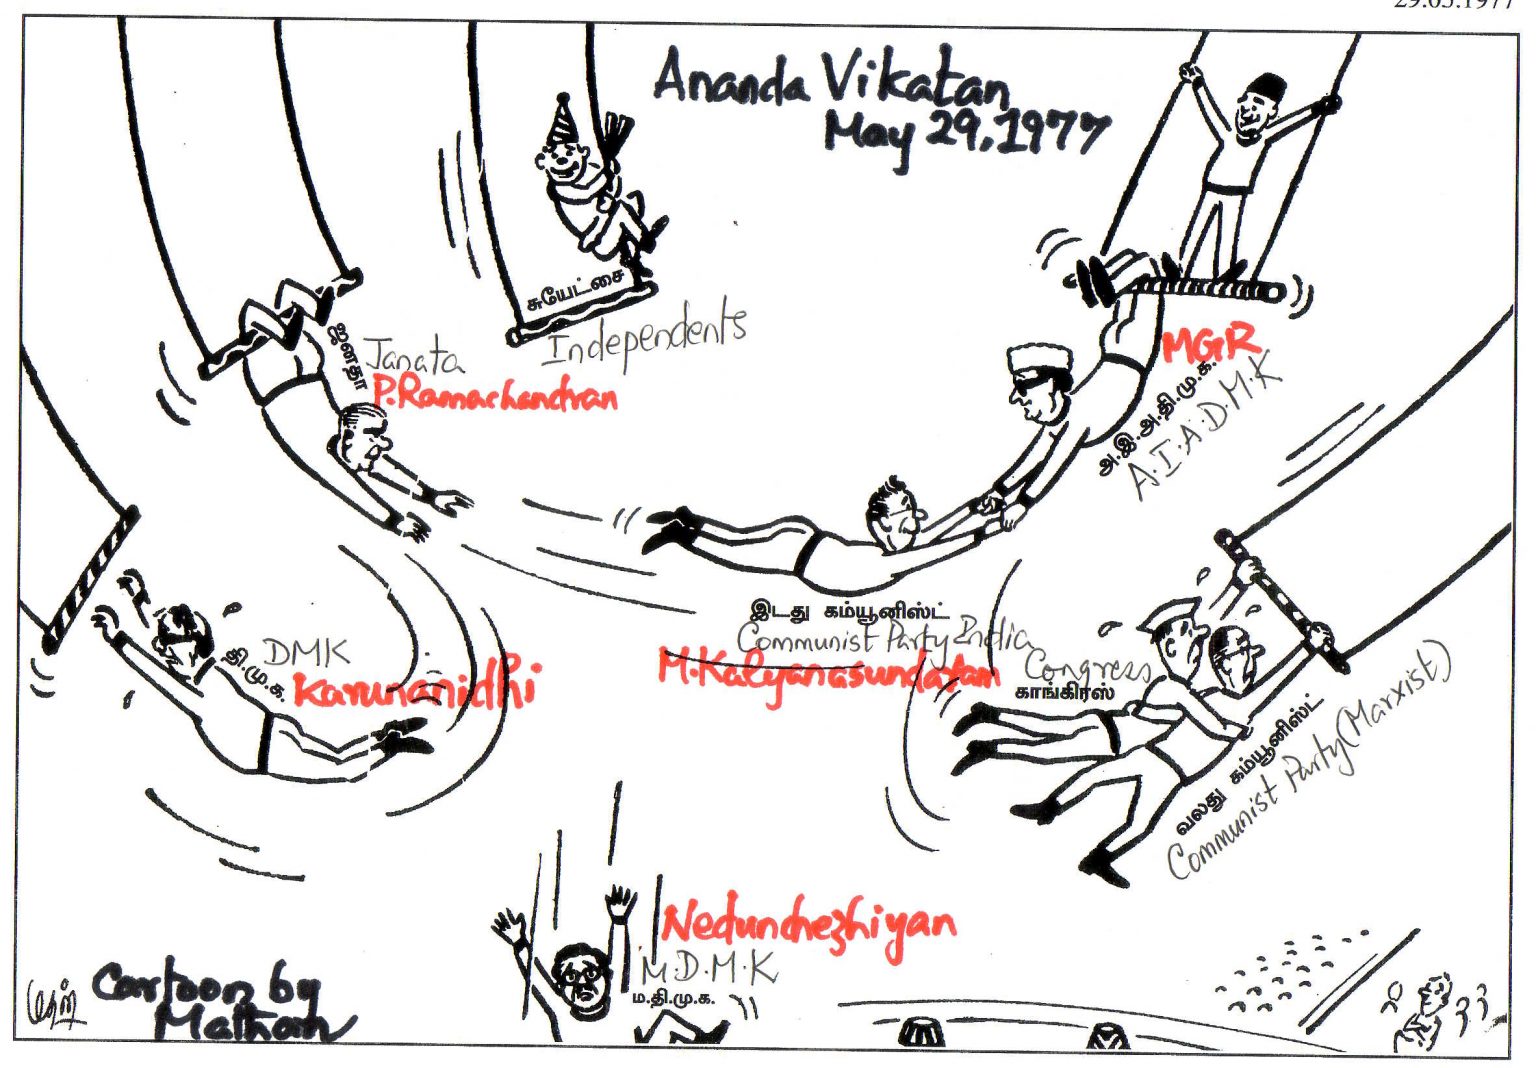 29.05.1977
Ananda Vikatan
May 29, 1977
சுயேட்சை
Independents
ஜனதா
Janata
P. Ramachandran
MGR
அ.இ.அ.தி.மு.க.
A.I.A.D.M.K
இடது கம்யூனிஸ்ட்
Communist Party India
M. Kalyanasundaram
DMK
தி.மு.க.
Karunanidhi
Congress
காங்கிரஸ்
வலது கம்யூனிஸ்ட்
Communist Party (Marxist)
Nedunchezhiyan
M.D.M.K
ம.தி.மு.க.
Cartoon by
Mathan